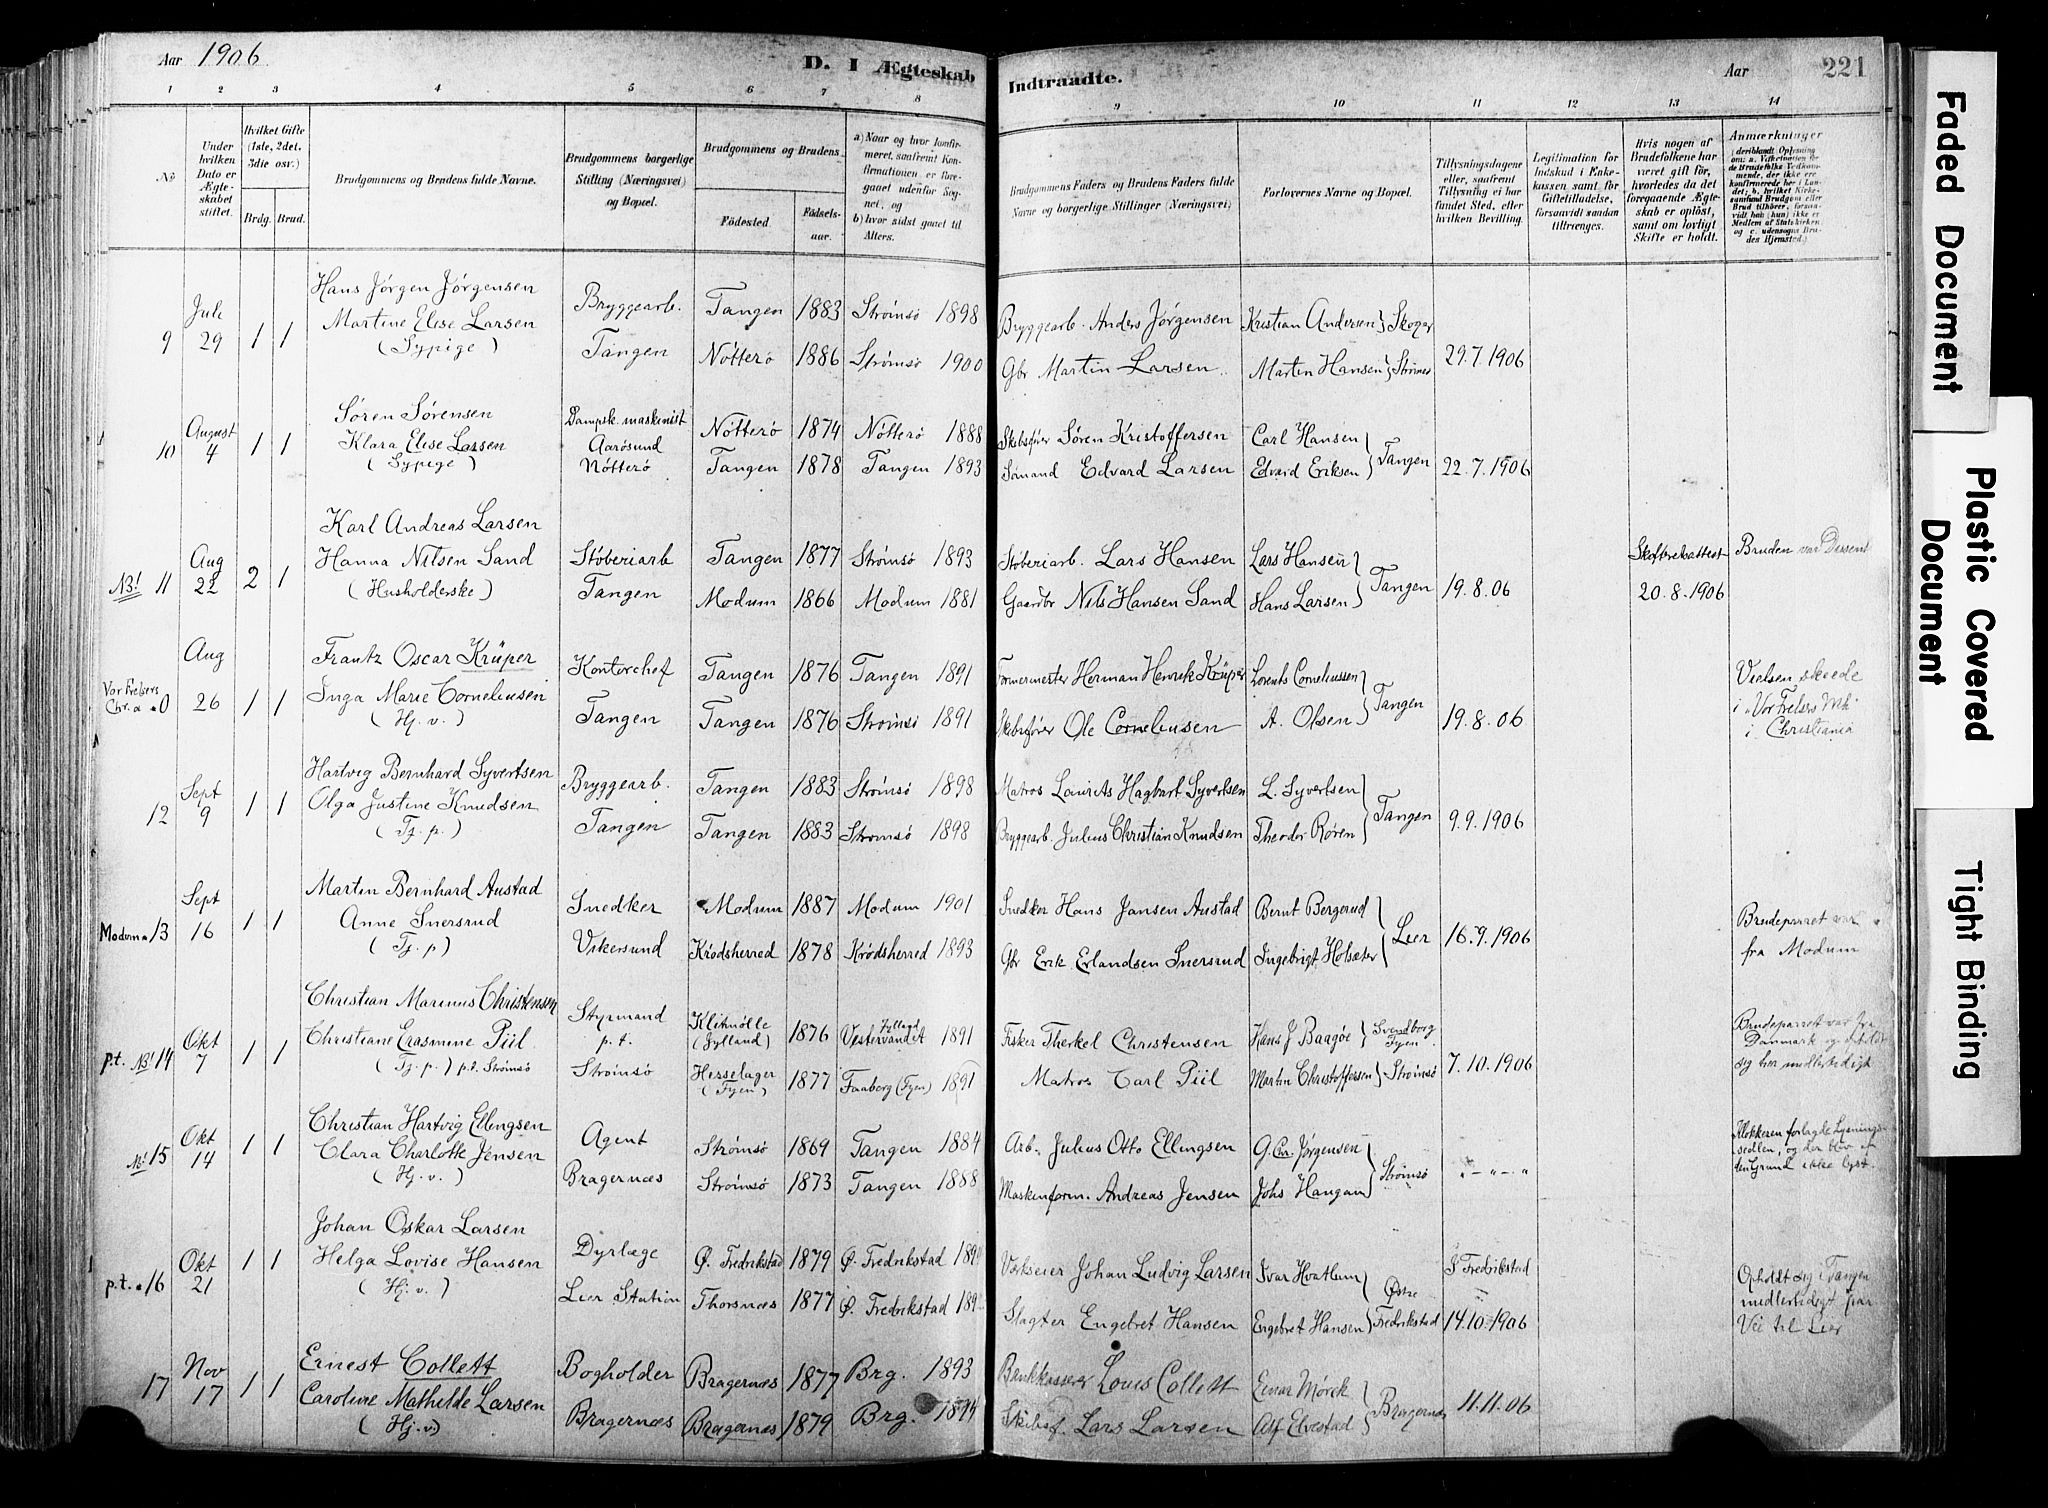 Aar 1906.
D. I Ægteskab Indtraadte.
Aar 221
1 2 3 4 5 6 7 8 9 10 11 12 13 14
№
Under hvilken Dato er Ægteskabet stiftet.
Hvilket Gifte (1ste, 2det, 3die osv.)
Brdg. Brud.
Brudgommens og Brudens fulde Navne.
Brudgommens borgerlige Stilling (Næringsvei) og Bopæl.
Brudgommens og Brudens
Fødested.
Fødselsaar.
a) Naar og hvor konfirmeret, saafremt Konfirmationen er foregaaet udenfor Sognet, og
b) hvor sidst gaaet til Alters.
Brudgommens Faders og Brudens Faders fulde Navne og borgerlige Stillinger (Næringsvei)
Forlovernes Navne og Bopæl.
Tillysningsdagene eller, saafremt Tillysning ei har fundet Sted, efter hvilken Bevilling.
Legitimation for Indskud i Enkekassen samt for Giftetilladelse, forsaavidt saadan tiltrænges.
Hvis nogen af Brudefolkene har været gift før, hvorledes da det foregaaende Ægteskab er opløst, samt om lovligt Skifte er holdt.
Anmærkninger
9 Juli 29 1 1
Hans Jørgen Jørgensen
Martine Elise Larsen
(Sypige)
Bryggearb. Tangen
Tangen 1883 Strømsø 1898
Nøtterø 1886 Strømsø 1900
Bryggearb. Anders Jørgensen
Gbr Martin Larsen
Kristian Andersen } Skoger
Martin Hansen } Strømsø
29.7.1906
10 August 4 1 1
Søren Sørensen
Klara Elise Larsen
(Sypige)
Dampsk. maskinist
Aarøsund
Nøtterø
Nøtterø 1874 Nøtterø 1888
Tangen 1878 Tangen 1893
Skibsfører Søren Kristoffersen
Sømand Edvard Larsen
Carl Hansen
Edvard Eriksen } Tangen
22.7.1906
NB! 11 Aug 22 2 1
Karl Andreas Larsen
Hanna Nilsen Sand
(Husholderske)
Støberiarb
Tangen
Tangen 1877 Strømsø 1893
Modum 1866 Modum 1881
Støberiarb. Lars Hansen
Gaardbr Nils Hansen Sand
Lars Hansen
Hans Larsen } Tangen
19.8.06
20.8.1906
Bruden var Dissent
Vor Frelsers Chr.a 0 Aug 26 1 1
Frantz Oscar Krüper
Inga Marie Corneliusen
(Hj. v.)
Kontorchef
Tangen
Tangen 1876 Tangen 1891
Tangen 1876 Strømsø 1891
Formermester Herman Henrik Krüper
Skibsfører Ole Corneliusen
Lorents Corneliussen
A. Olsen } Tangen
19.8.06
Vielsen skeede
i "Vor Frelsers Mk"
i Christiania
12 Sept 9 1 1
Hartvig Bernhard Syvertsen
Olga Justine Knudsen
(Tj. p.)
Bryggearb.
Tangen
Tangen 1883 Strømsø 1898
Tangen 1883 Strømsø 1898
Matros Laurits Hagbart Syvertsen
Bryggearb. Julius Christian Knudsen
L. Syvertsen
Theodor Røren } Tangen
9.9.1906
Modum 13 Sept 16 1 1
Martin Bernhard Austad
Anne Snersrud
(Tj. p)
Snedker
Vikersund
Modum 1887 Modum 1901
Krødsherred 1878 Krødsherred 1893
Snedker Hans Jansen Austad
Gbr Erik Erlandsen Snersrud
Bernt Bergerud
Ingebrigt Holsæter } Lier
16.9.1906
Brudeparret var
fra Modum
p.t. NB! 14 Okt 7 1 1
Christian Marinus Christensen
Christiane Erasmine Piil
(Tj. p.) p.t. Strømsø
Styrmand
p.t.
Strømsø
Klitmølle (Jylland) 1876 Vestervandet Jylland 1891
Hesselager (Fyen) 1877 Faaborg (Fyen) 1891
Fisker Therkel Christensen
Matros Carl Piil
Hans J Baagøe } Svendborg Fyen
Martin Christoffersen } Strømsø
7.10.1906
Brudeparret var fra
Danmark og opholdt
sig her midlertidigt
NB! 15 Okt 14 1 1
Christian Hartvig Ellingsen
Clara Charlotte Jensen
(Hj. v.)
Agent
Bragernæs
Strømsø 1869 Tangen 1884
Strømsø 1873 Tangen 1888
Arb. Julius Otto Ellingsen
Maskenform. Andreas Jensen
G. Chr. Jørgensen
Johs Haugan } Strømsø
" - " - "
Klokkeren forlagde Lysnings-
sedlen, og der blev af
den Grund ikke lyst.
p.t. 16 Okt 21 1 1
Johan Oskar Larsen
Helga Lovise Hansen
(Hj. v.)
Dyrlæge
Lier Station
Ø. Fredrikstad 1879 Ø. Fredrikstad
Thorsnæs 1877 Ø. Fredrikstad
Værkseier Johan Ludvig Larsen
Slagter Engebret Hansen
Ivar Hvatlum
Engebret Hansen } Østre Fredrikstad
I Fredrikstad
14.10.1906
Opholdt sig i Tangen
midlertidigt paa
Vei til Lier
17 Nov 17 1 1
Ernest Collett
Caroline Mathilde Larsen
(Hj. v)
Bogholder
Bragernæs
Bragernæs 1877 Brg. 1893
Bragernæs 1879 Brg. 1894
Bankkasserer Louis Collett
Skibsf. Lars Larsen
Einar Mørck
Alf Elvestad } Bragernæs
11.11.06
Faded Document
Plastic Covered Document
Tight Binding